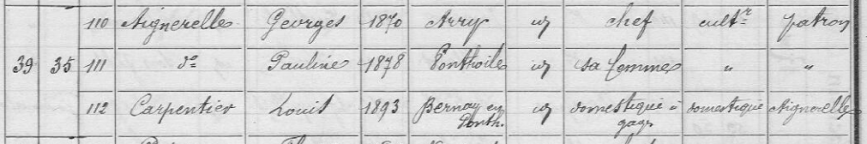 110 Aignerelle Georges 1870 Arry id chef cultr patron
39 35 111 do Pauline 1878 Ponthoile id sa femme " "
112 Carpentier Louis 1893 Bernay en Ponth. id domestique à gages domestique Aignerelle